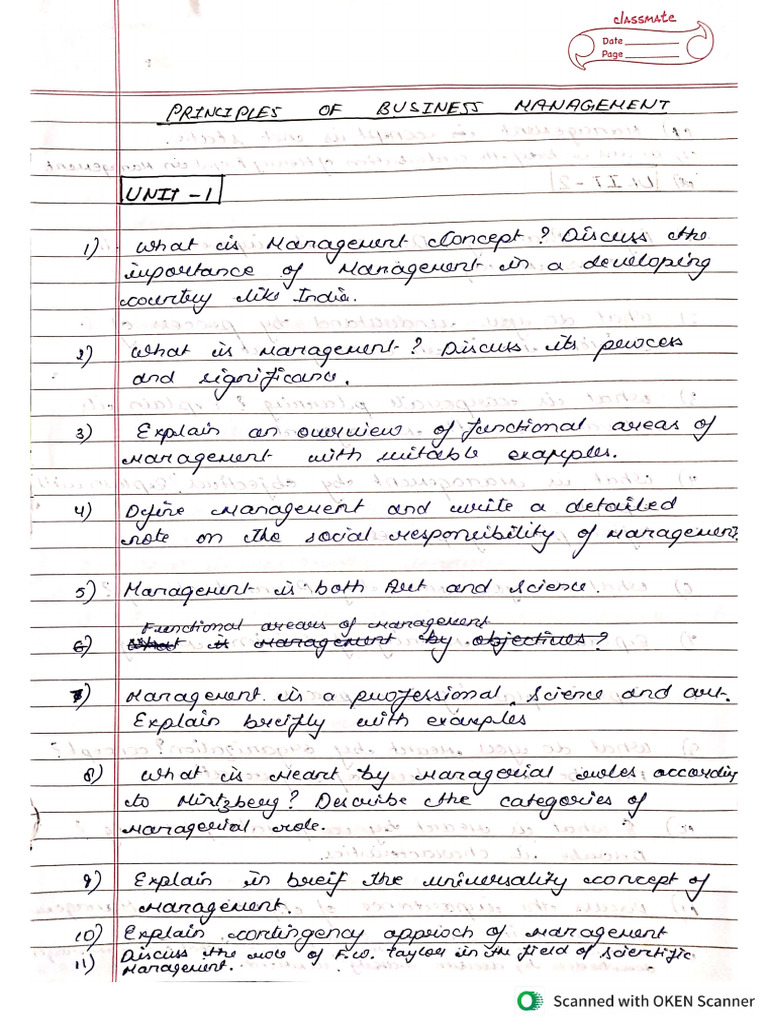 classmate
Date
Page
PRINCIPLES OF BUSINESS MANAGEMENT
UNIT - 1
1) What is Management Concept? Discuss the
importance of Management in a developing
country like India.
2) What is Management? Discuss its process
and significance.
3) Explain an overview of functional areas of
Management with suitable examples.
4) Define Management and write a detailed
note on the social responsibility of Management.
5) Management is both Art and Science.
Functional areas of Management
6) What is Management by objectives?
7) Management is a professional, Science and art.
Explain breifly with examples
8) What is Meant by Managerial roles according
to Mintzberg? Describe the categories of
Managerial role.
9) Explain in breif the universality concept of
Management.
10) Explain contingency approch of Management
11) Discuss the role of F.W. Taylor in the field of Scientific
Management.
Scanned with OKEN Scanner